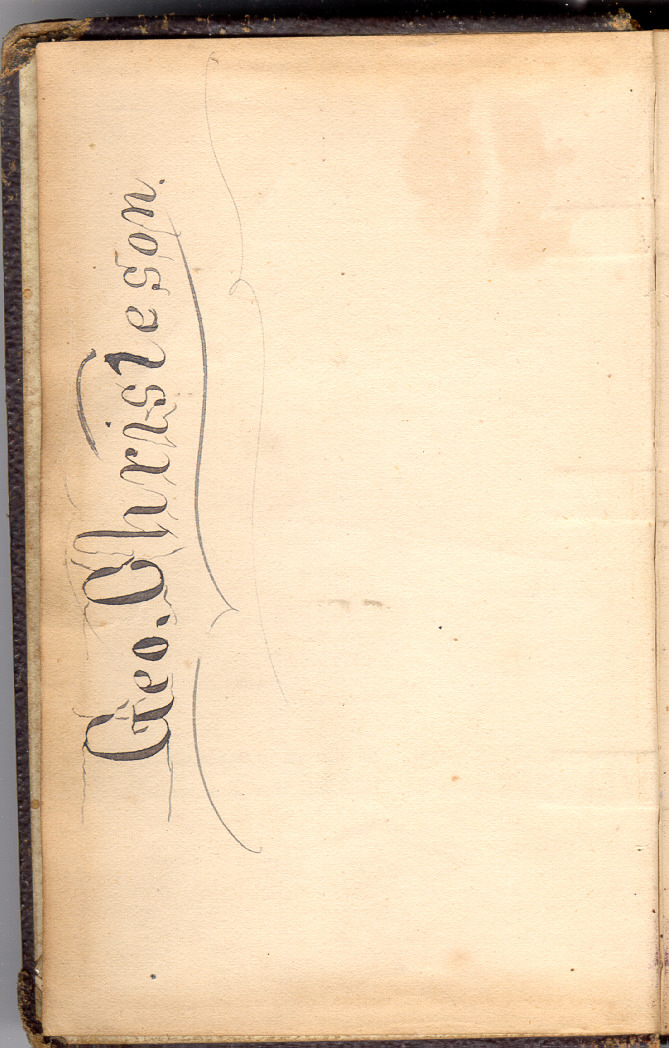 Geo. Christeson.